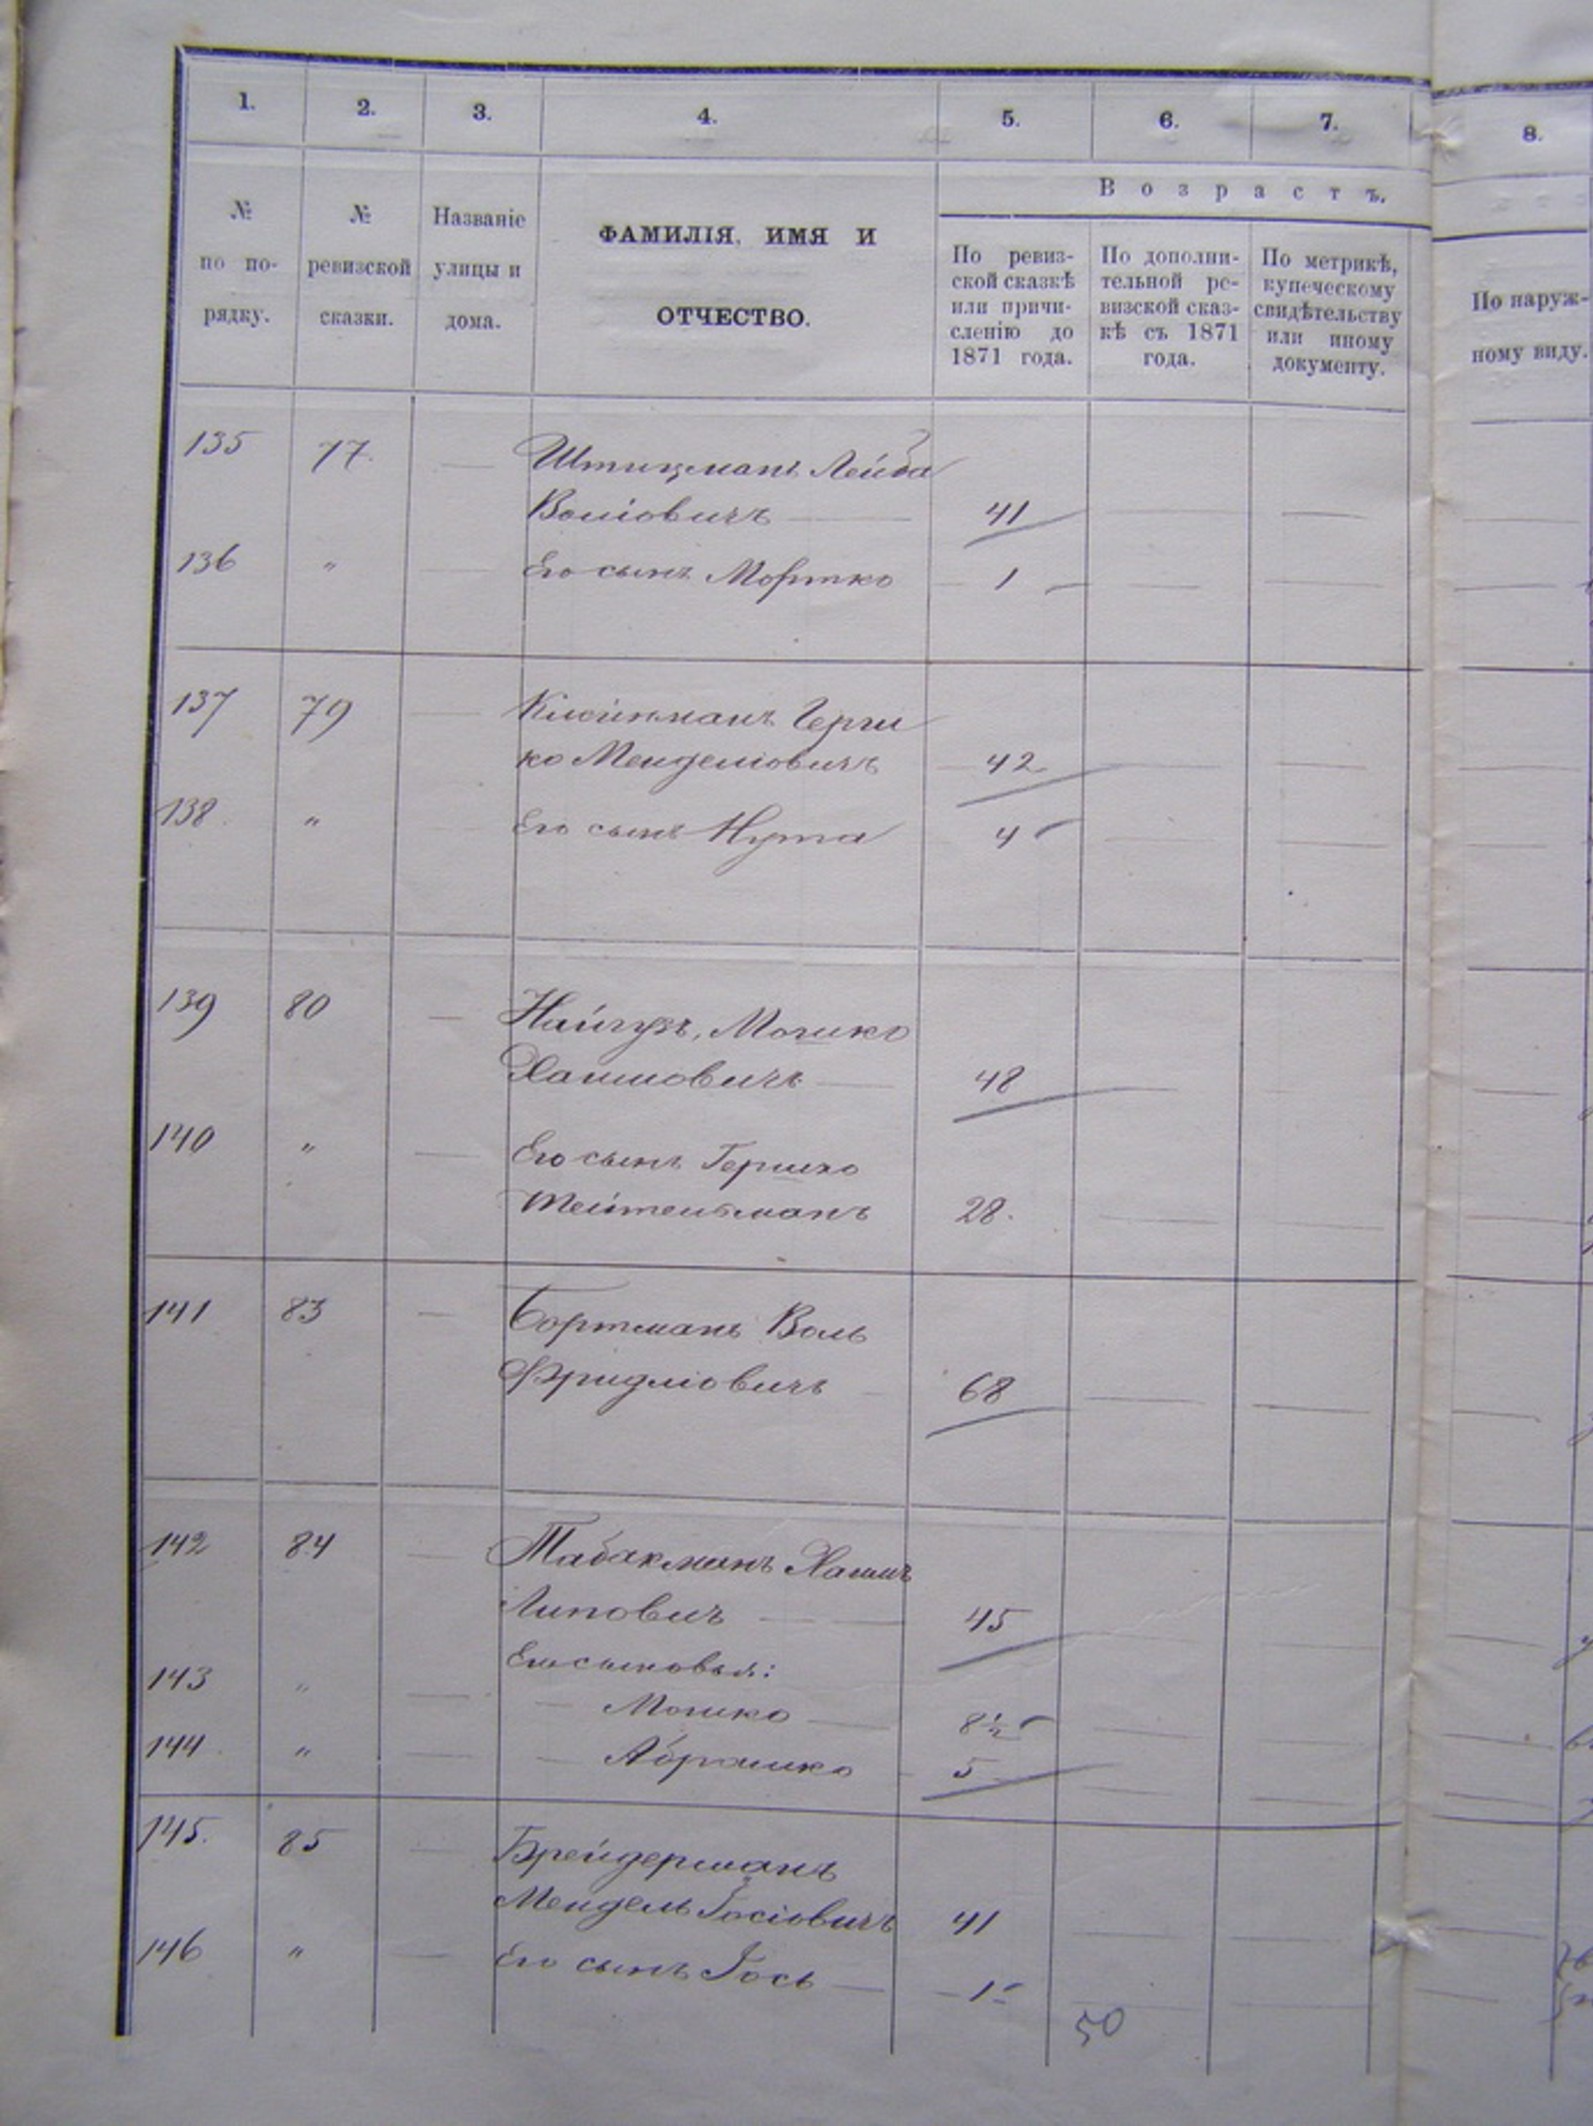 1. 2. 3. 4. 5. 6. 7. 8.
№ по по-рядку.
№ ревизской сказки.
Названіе улицы и дома.
ФАМИЛІЯ, ИМЯ И ОТЧЕСТВО.
Возрастъ.
По ревиз-
ской сказкѣ
или причи-
сленію до
1871 года.
По дополни-
тельной ре-
визской сказ-
кѣ съ 1871
года.
По метрикѣ,
купеческому
свидѣтельству
или иному
документу.
По наруж-
ному виду.
135 77. — Штицманъ Лейба
Волiовичъ — 41
136 " — Его сынъ Мортко 1
137 79 — Клейнманъ Герш
ко Менделіовичъ 42
138. " Его сынъ Нута 4
139 80 — Найгузъ, Мошко
Хаимовичъ — 48
140 " — Его сынъ Гершко
Тейтельманъ 28.
141 83 — Бортманъ Воль
Фридліовичъ 68
142 84 — Табакманъ Хаимъ
Липовичъ — 45
Его сыновья:
143 " — Мошко — 8½
144. " — Абрамко 5
145. 85 — Брейдерманъ
Мендель Іосіовичъ 41
146 " — Его сынъ Іось — 1
50